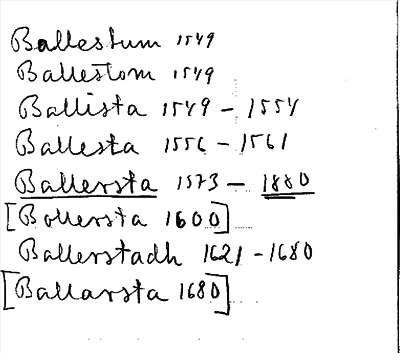 Ballestum 1549
Ballestom 1549
Ballista 1549 - 1554
Ballesta 1556 - 1561
Ballersta 1573 - 1880
[Bollersta 1600]
Ballerstadh 1621 - 1680
[Ballarsta 1680]